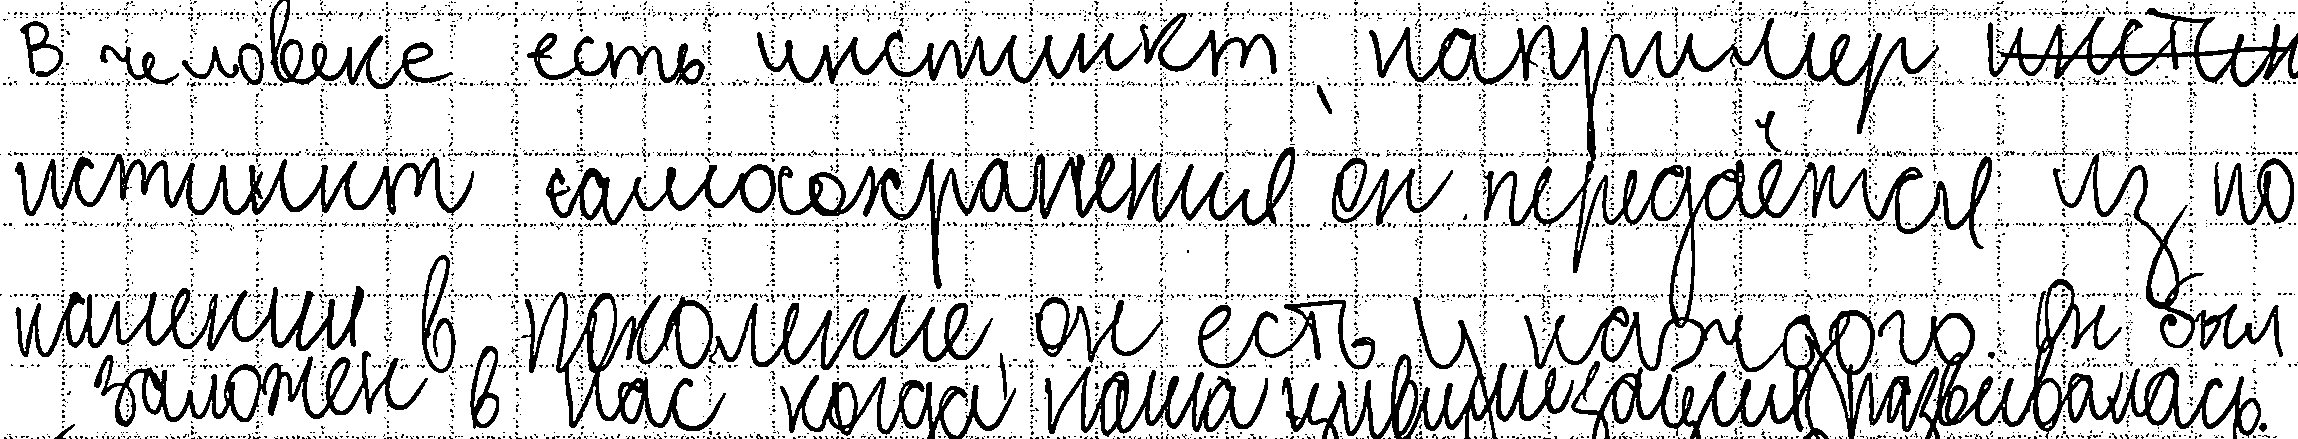 В человеке есть инстинкт, например
истинкт самосохранения он передаётся из по
каления в поколение он есть у каждого. Он был
заложен в нас когда наша цивилизация развивалась.